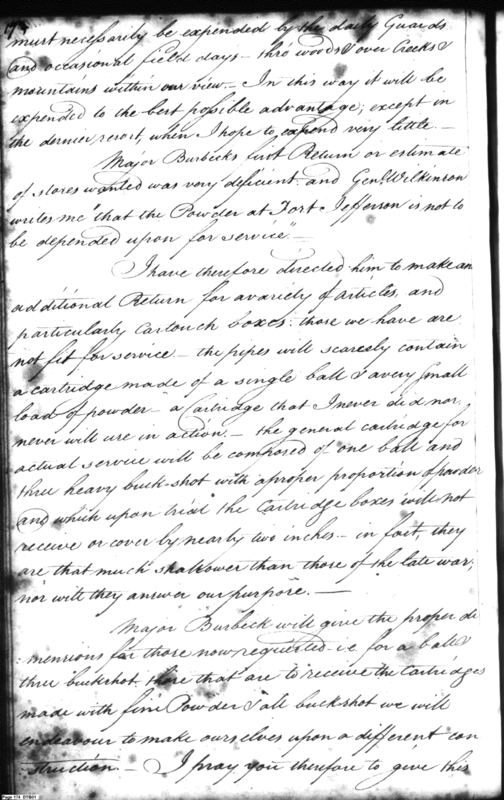 74
must necessarily be expended by the daily Guards
and occasional field days – thro' woods & over Creeks &
mountains within our view. – In this way it will be
expended to the best possible advantage; except in
the dernier resort, when I hope to expend very little. –
Major Burbecks first Return or estimate
of stores wanted was very deficient. and Genl. Wilkinson
writes me "that the Powder at Fort Jefferson is not to
be depended upon for service" –
I have therefore directed him to make an
additional Return for a variety of articles, and
particularly Cartouch boxes: those we have are
not fit for service – the pipes will scarcely contain
a cartridge made of a single ball & a very small
load of powder – a Cartridge that I never did nor
never will use in action. – the general cartridge for
actual service will be composed of one ball and
three heavy buck-shot with a proper proportion of powder
and which upon trial the Cartridge boxes will not
receive or cover by nearly two inches – in fact, they
are that much shallower than those of the late war;
nor will they answer our purpose. –
Major Burbeck will give the proper di
mensions for those now requested i.e for a ball &
three buckshot. those that are to receive the Cartridges
made with fine Powder & all buckshot we will
endeavour to make ourselves upon a different con
struction. – I pray you therefore to give this